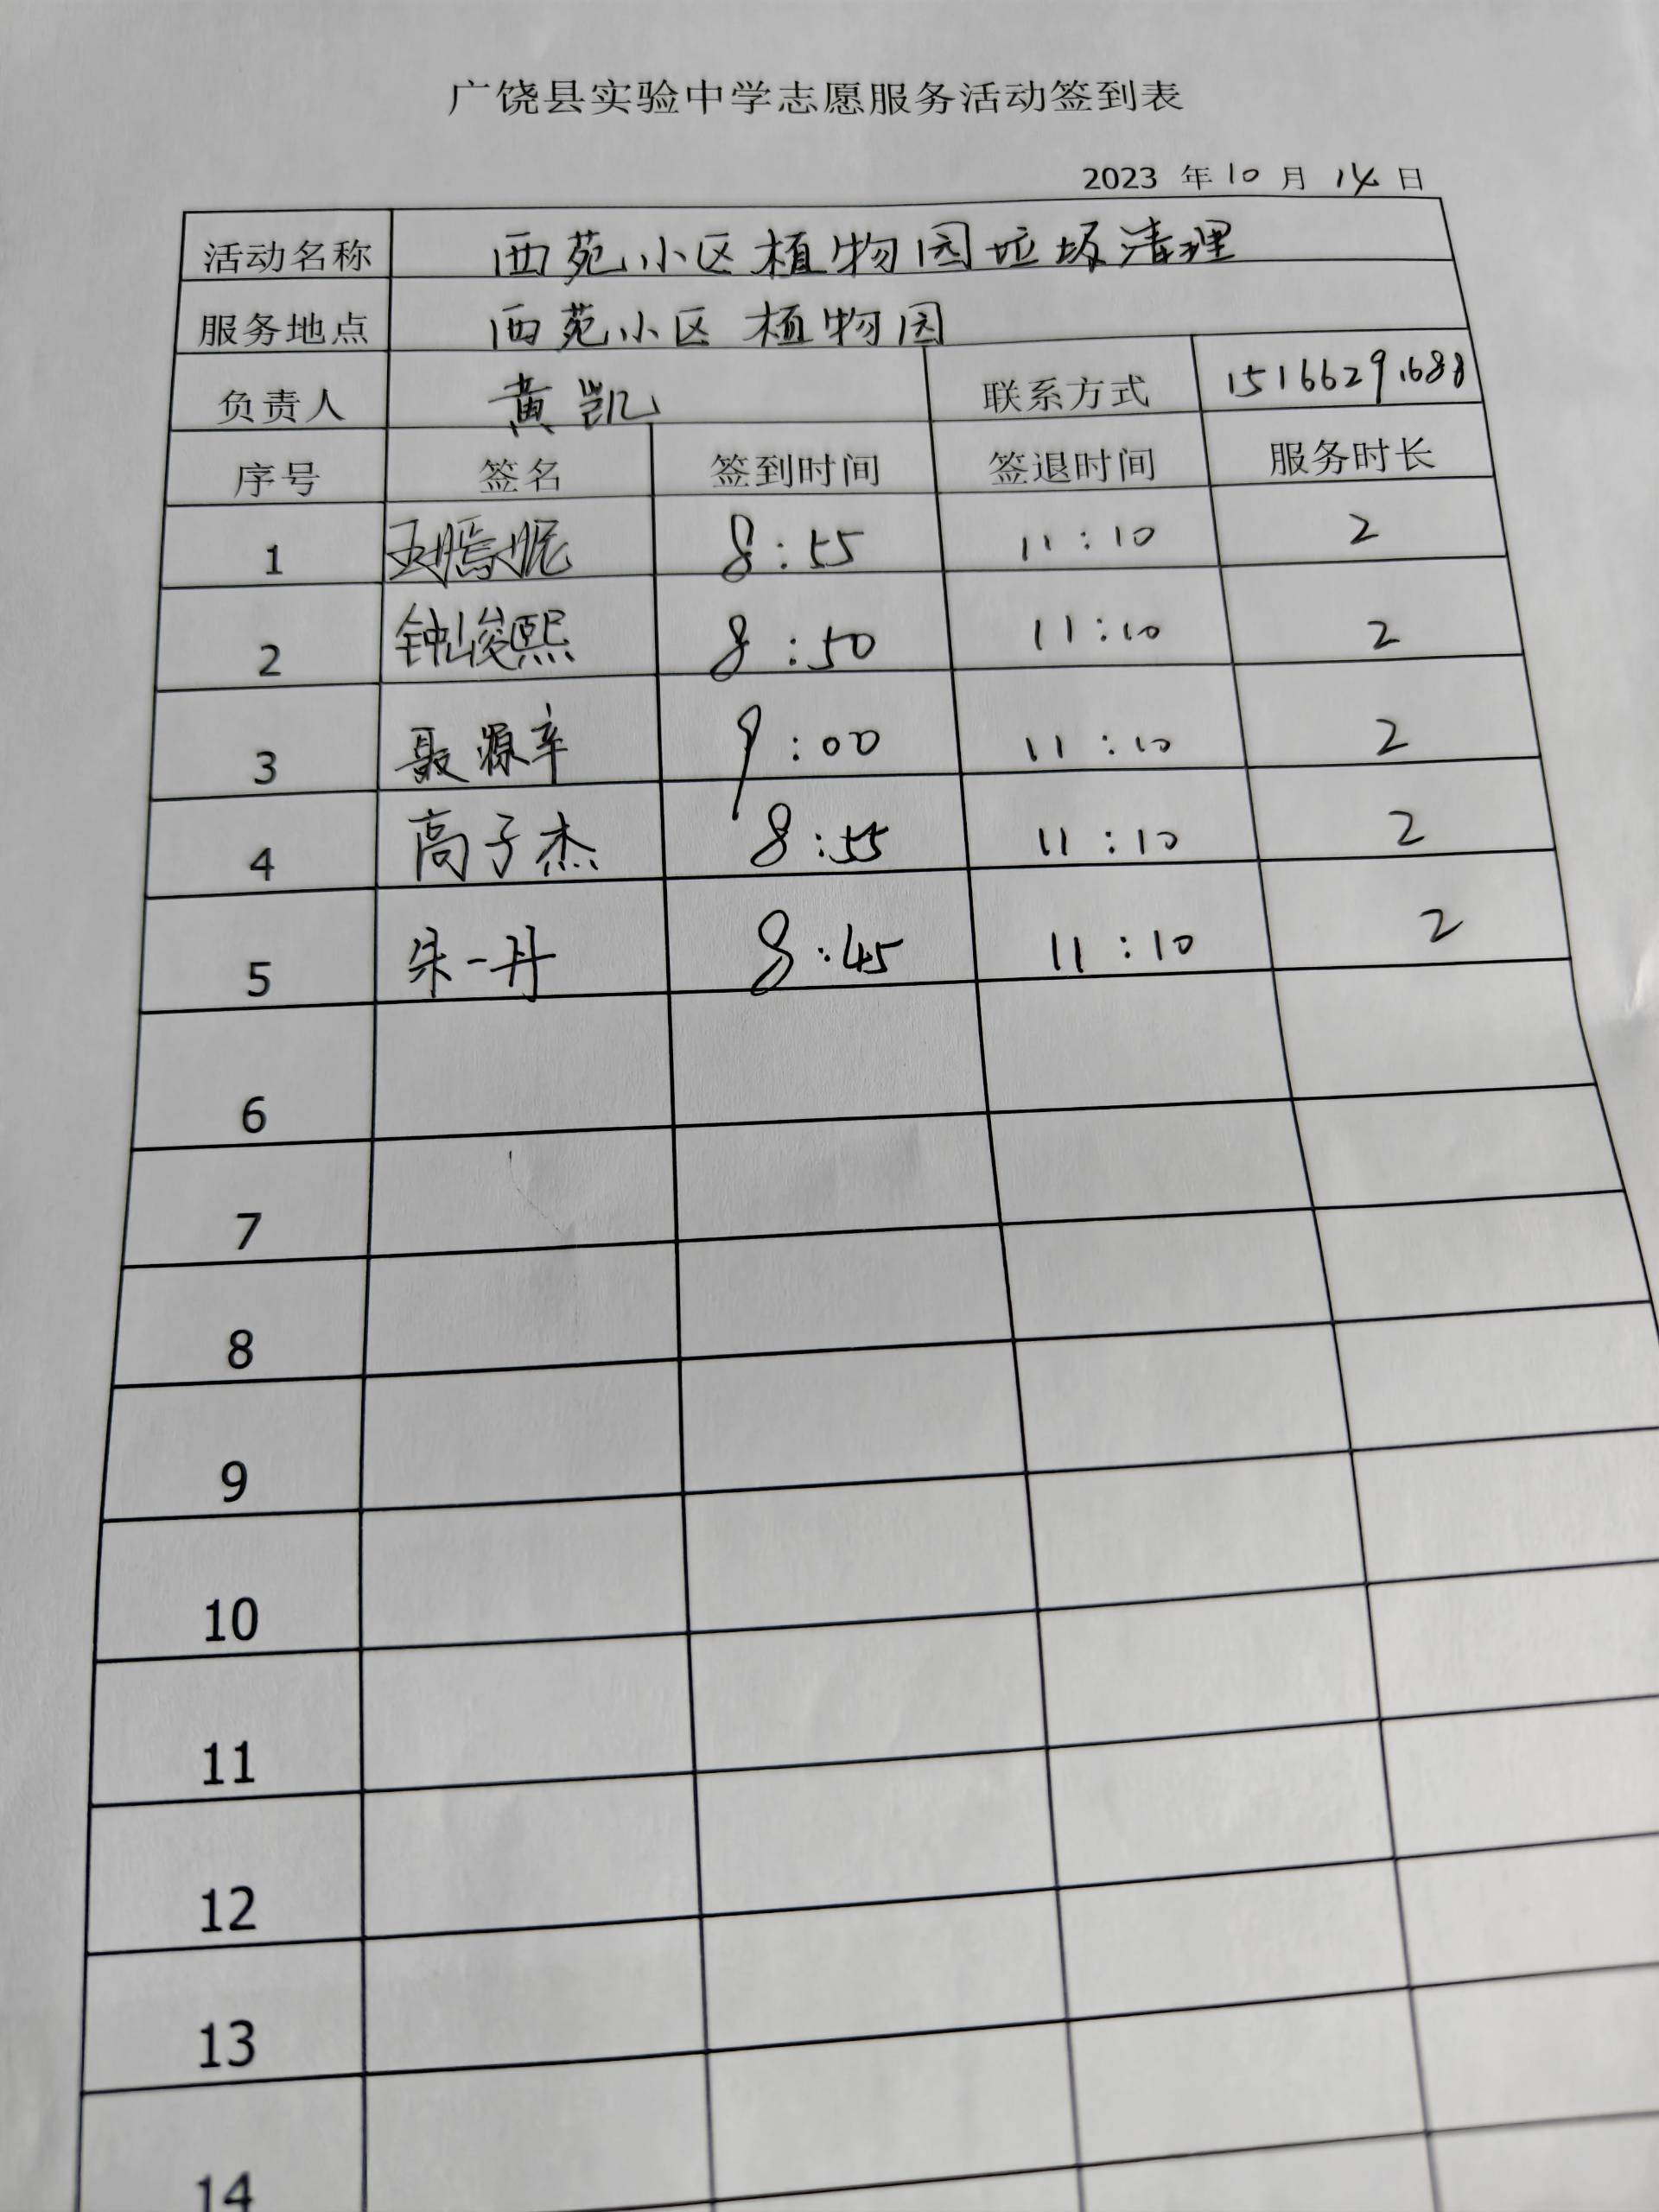 广饶县实验中学志愿服务活动签到表
2023 年 10 月 14 日
活动名称 西苑小区植物园垃圾清理
服务地点 西苑小区植物园
负责人 黄凯 联系方式 15166291688
序号 签名 签到时间 签退时间 服务时长
1 8:55 11:10 2
2 钟峻熙 8:50 11:10 2
3 聂源辛 9:00 11:10 2
4 高子杰 8:55 11:10 2
5 朱一丹 8:45 11:10 2
6
7
8
9
10
11
12
13
14